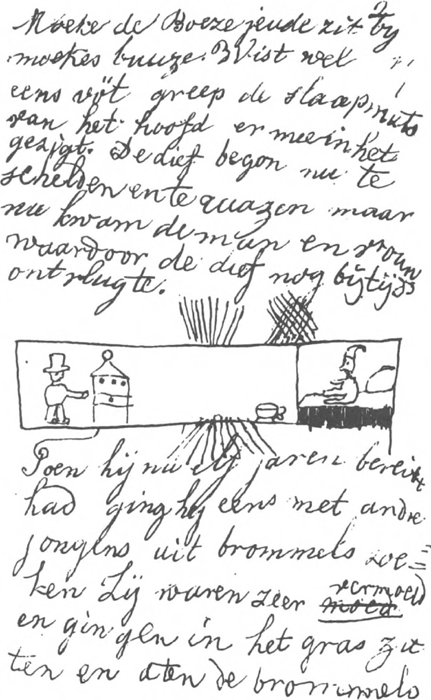 Moeke de Boezejeude zit by
moekes buuze. Wist wel
eens vöt greep de slaapmuts
van het hoofd er mee in het
gezigt. De dief begon nu te
schelden en te quazen maar
nu kwam de man en vrouw
waardoor de dief nog bijtijds
ontvlugte.
Poen hij nu elf jaren bereikt
had ging hij eens met andre
jongens uit brommels zoe=
ken Zij waren zeer vermoeid
en gingen in het gras zit
ten en aten de brommels